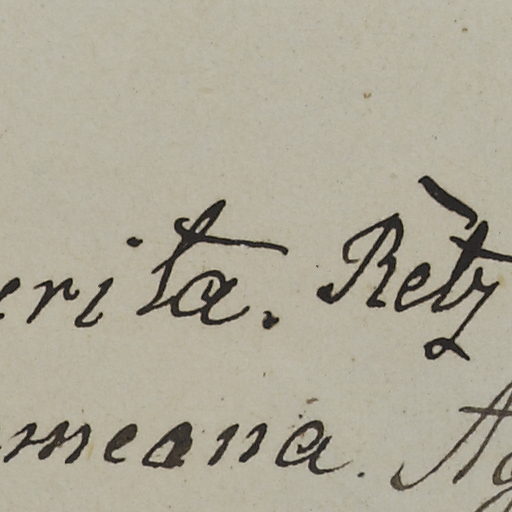 erita. Retz
meana. Ag